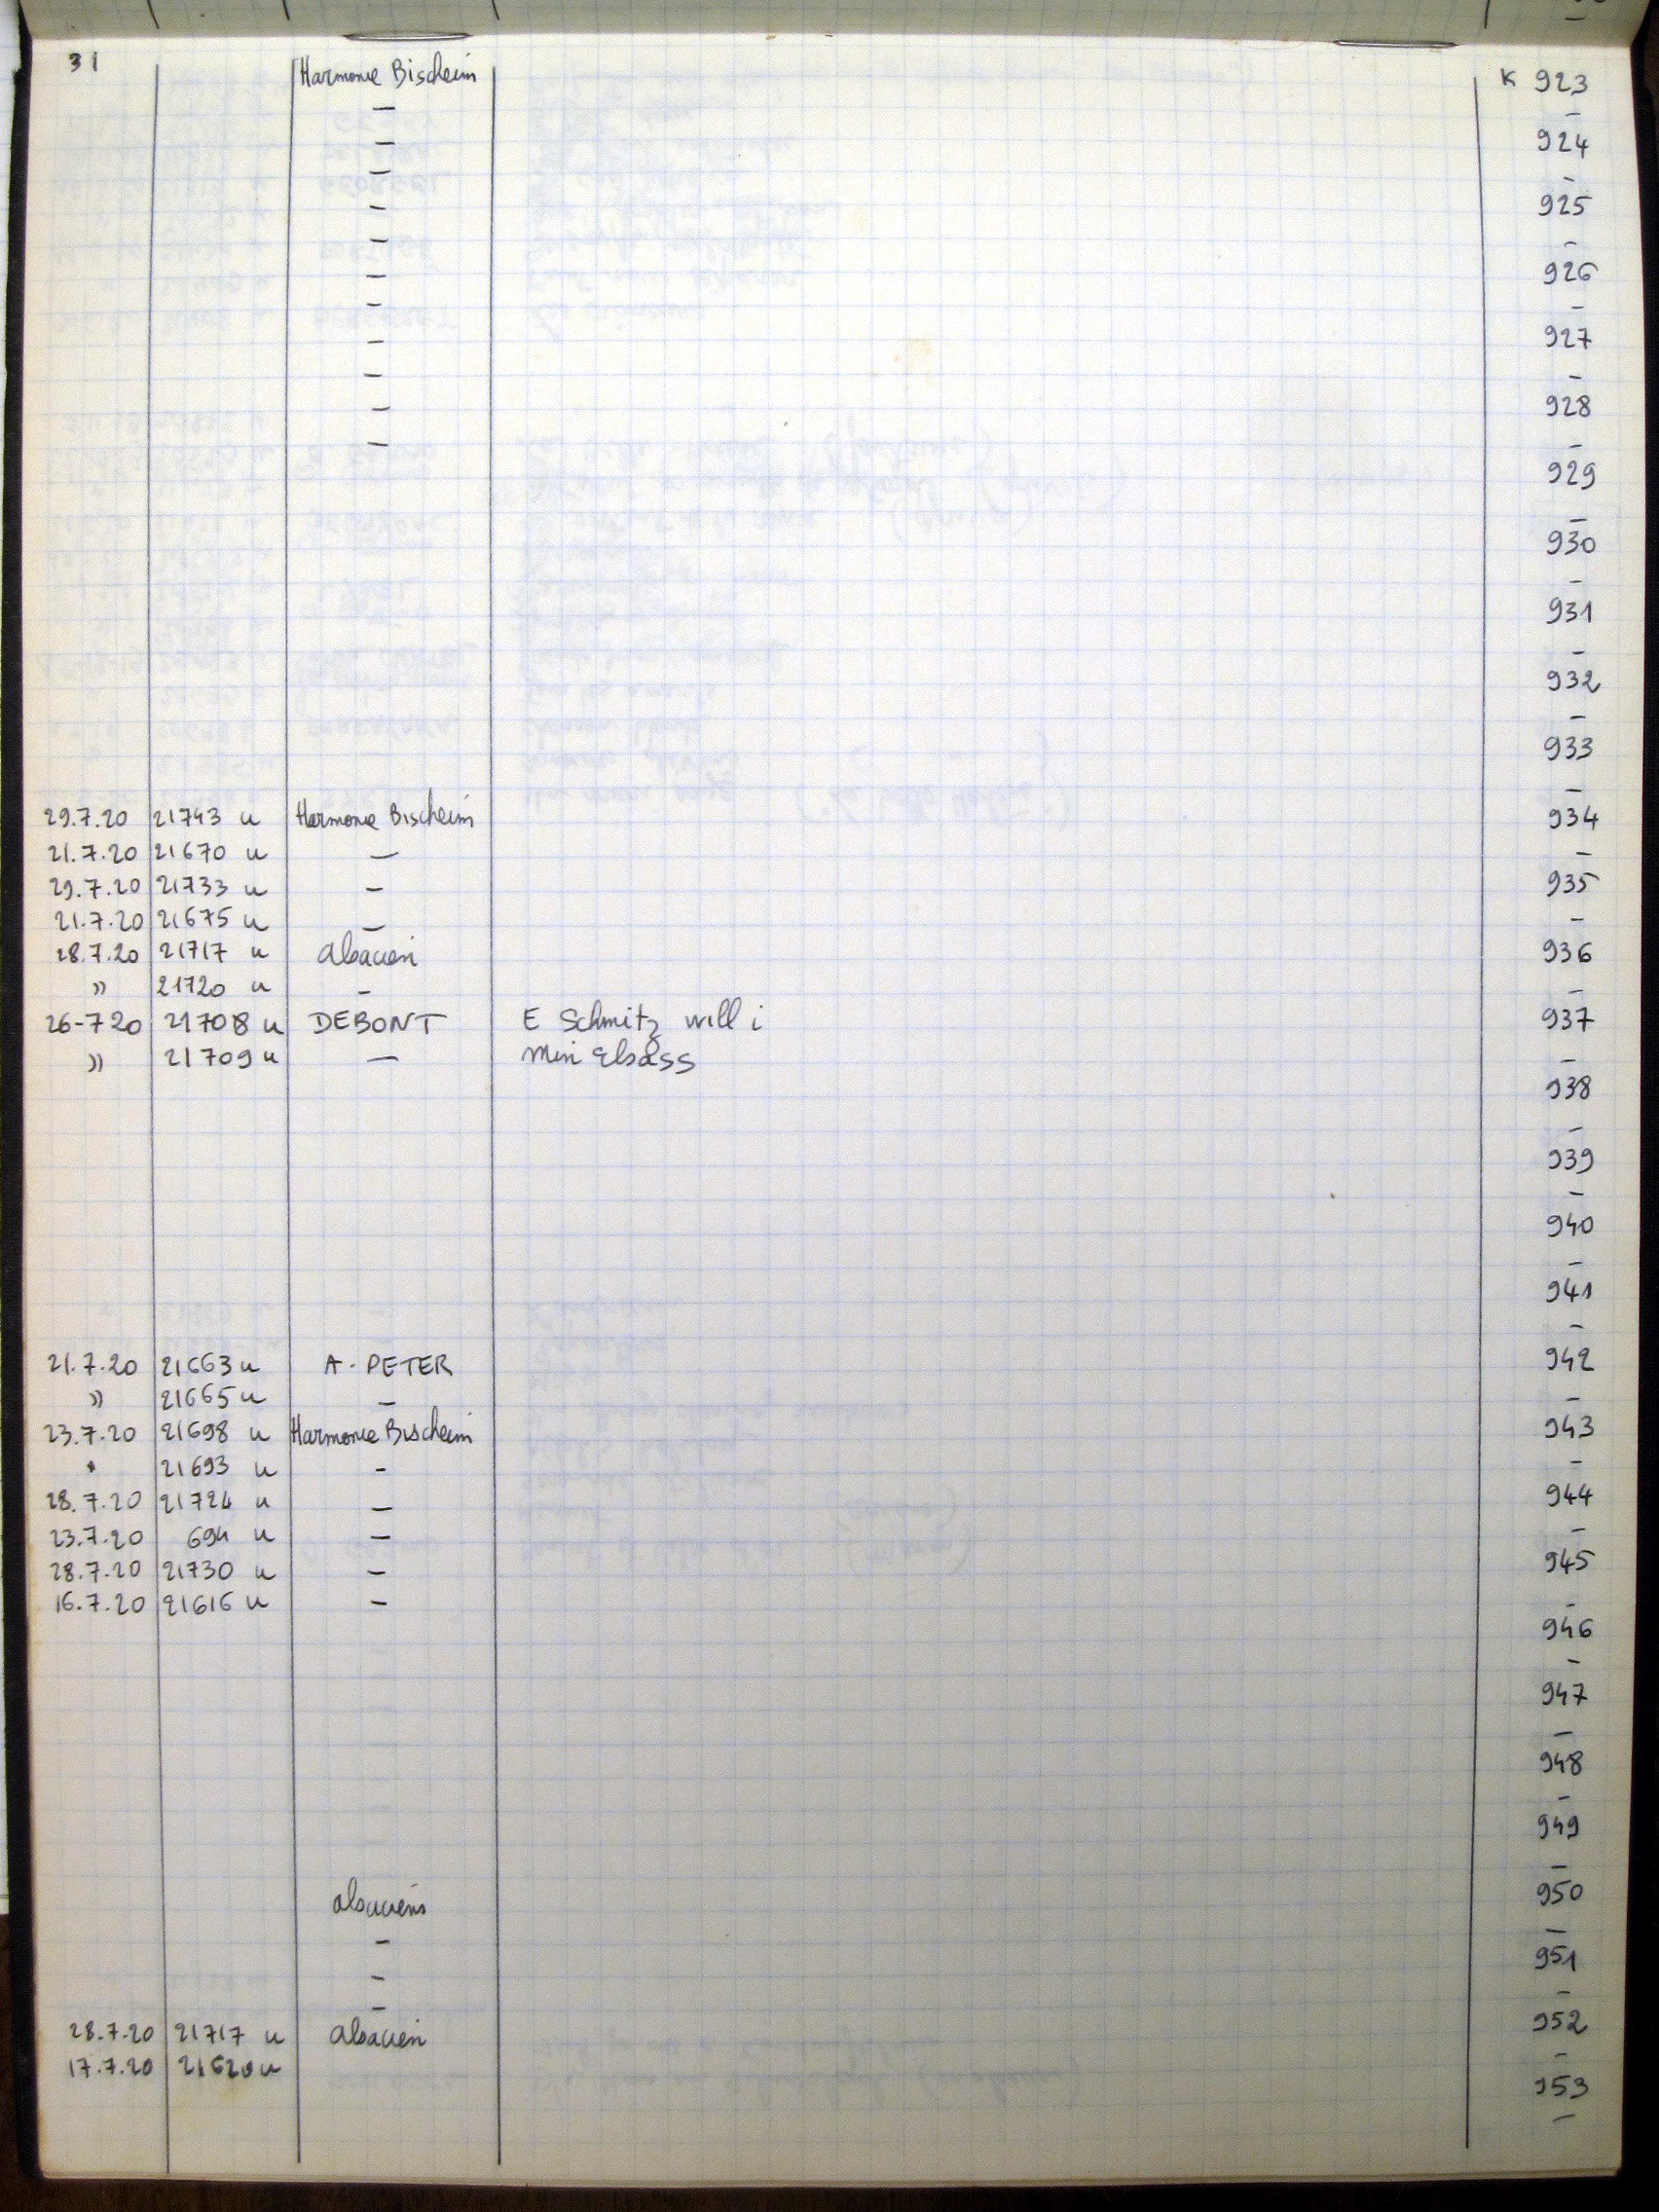 31 Harmonie Bischeim K 923
— —
— 924
— —
— 925
— —
— 926
— —
— 927
— —
— 928
— —
929
—
930
—
931
—
932
—
933
—
29.7.20 21743 u Harmonie Bischeim 934
21.7.20 21670 u — —
29.7.20 21733 u — 935
21.7.20 21675 u — —
28.7.20 21717 u alsacien 936
» 21720 u — —
26-7 20 21708 u DEBONT E Schmitz will i 937
» 21709 u — Min Elsass —
938
—
939
—
940
—
941
—
21.7.20 21663 u A. PETER 942
» 21665 u — —
23.7.20 21698 u Harmonie Bischeim 943
" 21693 u — —
28.7.20 21724 u — 944
23.7.20 694 u — —
28.7.20 21730 u — 945
16.7.20 21616 u — —
946
—
947
—
948
—
949
—
alsaciens 950
— —
— 951
— —
28.7.20 21717 u alsacien 952
17.7.20 21620 u —
953
—